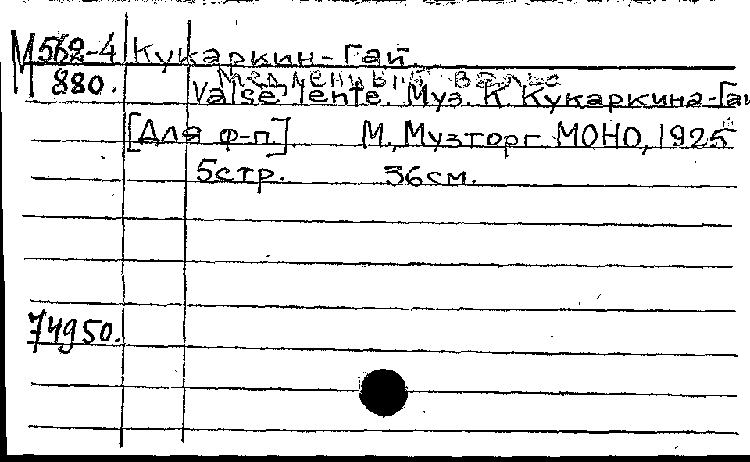 М 562-4 Кукаркин-Гай.
880. Медленный вальс
Valse lente. Муз. К. Кукаркина-Гай
[Для ф-п.] М., Музторг МОНО, 1925
5стр. 36см.
74950.